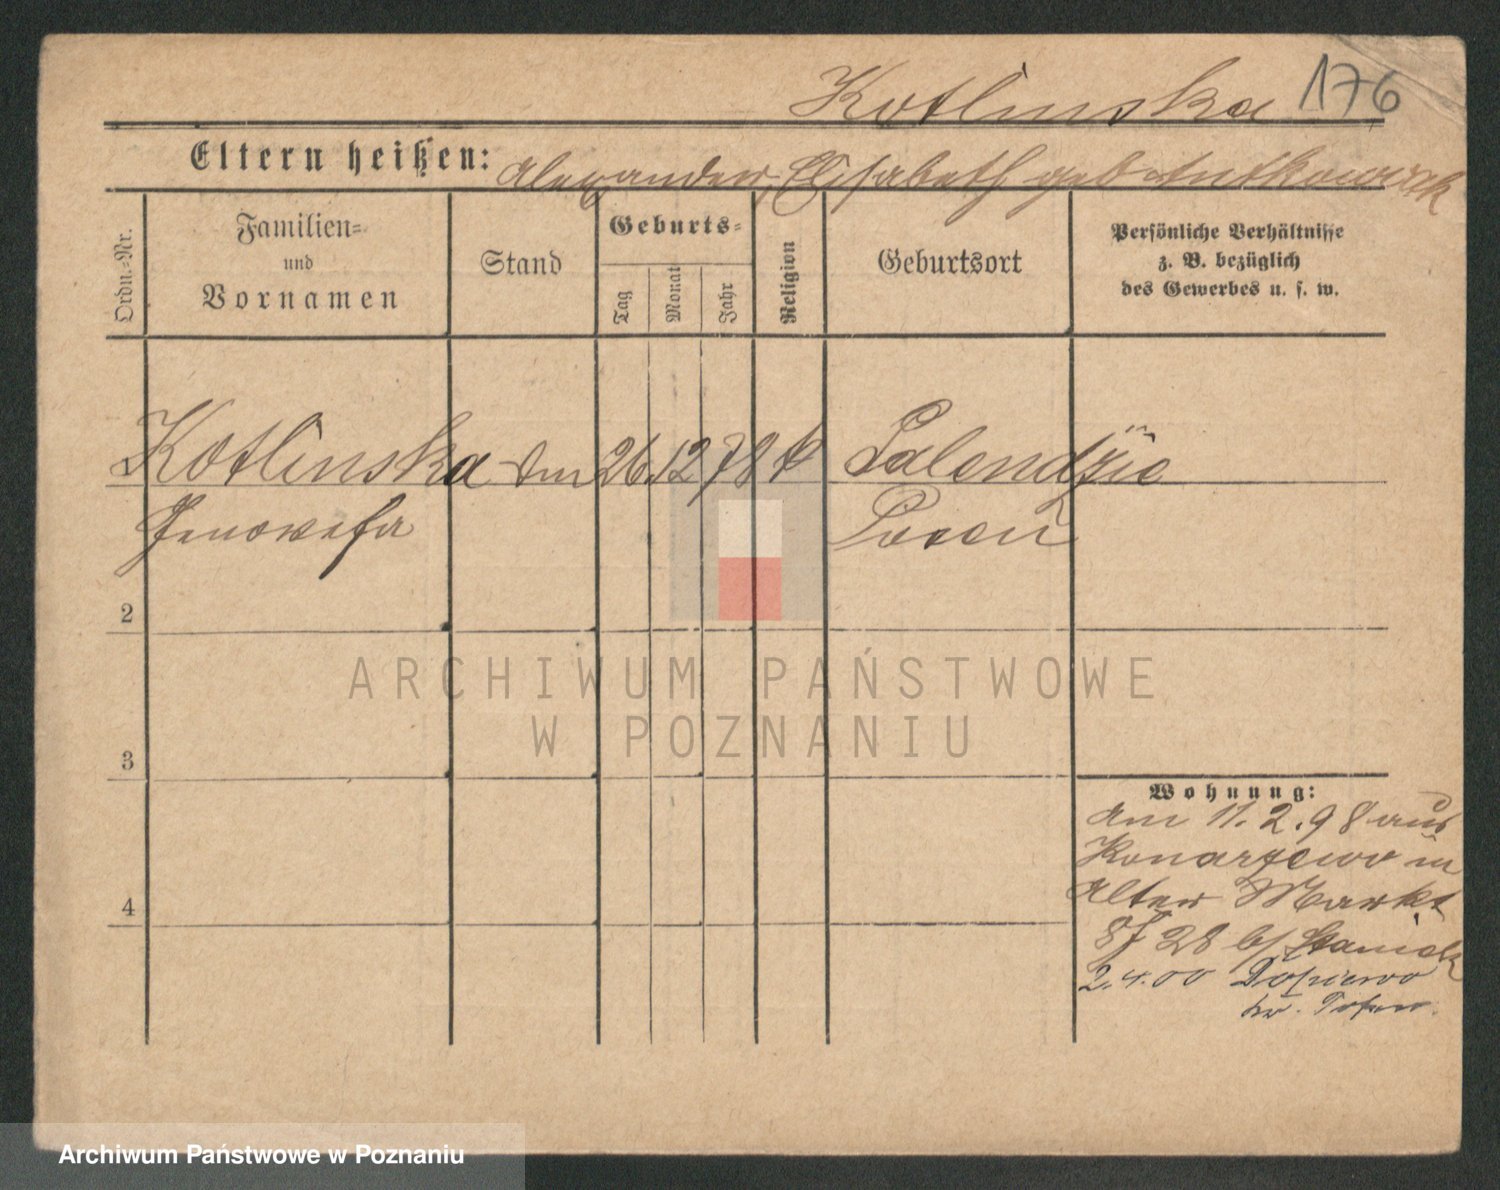 Kotlinska 176
Eltern heißen: Alexander, Elisabeth geb. Antkowiack
Ordn.-Nr.
Familien-
und
Vornamen
Stand
Geburts-
Tag
Monat
Jahr
Religion
Geburtsort
Persönliche Verhältnisse
z. B. bezüglich
des Gewerbes u. s. w.
1 Kotlinska 26. 12 78 k Palendzie
Genowefa Posen
2
3
4
Wohnung:
am 11. 2. 98 aus
Konarzewo in
Alter Markt
28 b/
2. 4. 00 Dopiewo
Kr. Posen.
ARCHIWUM PAŃSTWOWE
W POZNANIU
Archiwum Państwowe w Poznaniu